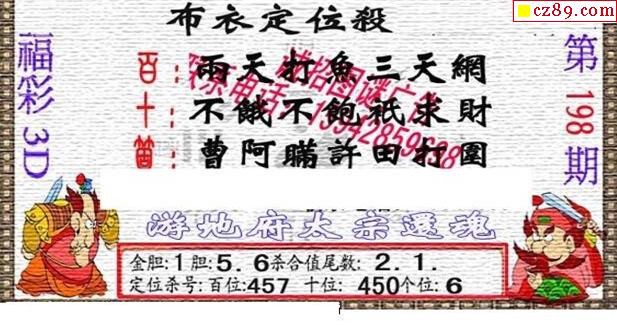 cz89.com
布衣定位殺
福彩3D
第198期
百：兩天打魚三天網
十：不餓不飽祇求財
個：曹阿瞞許田打圍
游地府太宗還魂
金胆:1胆:5.6杀合值尾数:2.1.
定位杀号:百位:457 十位:450个位:6